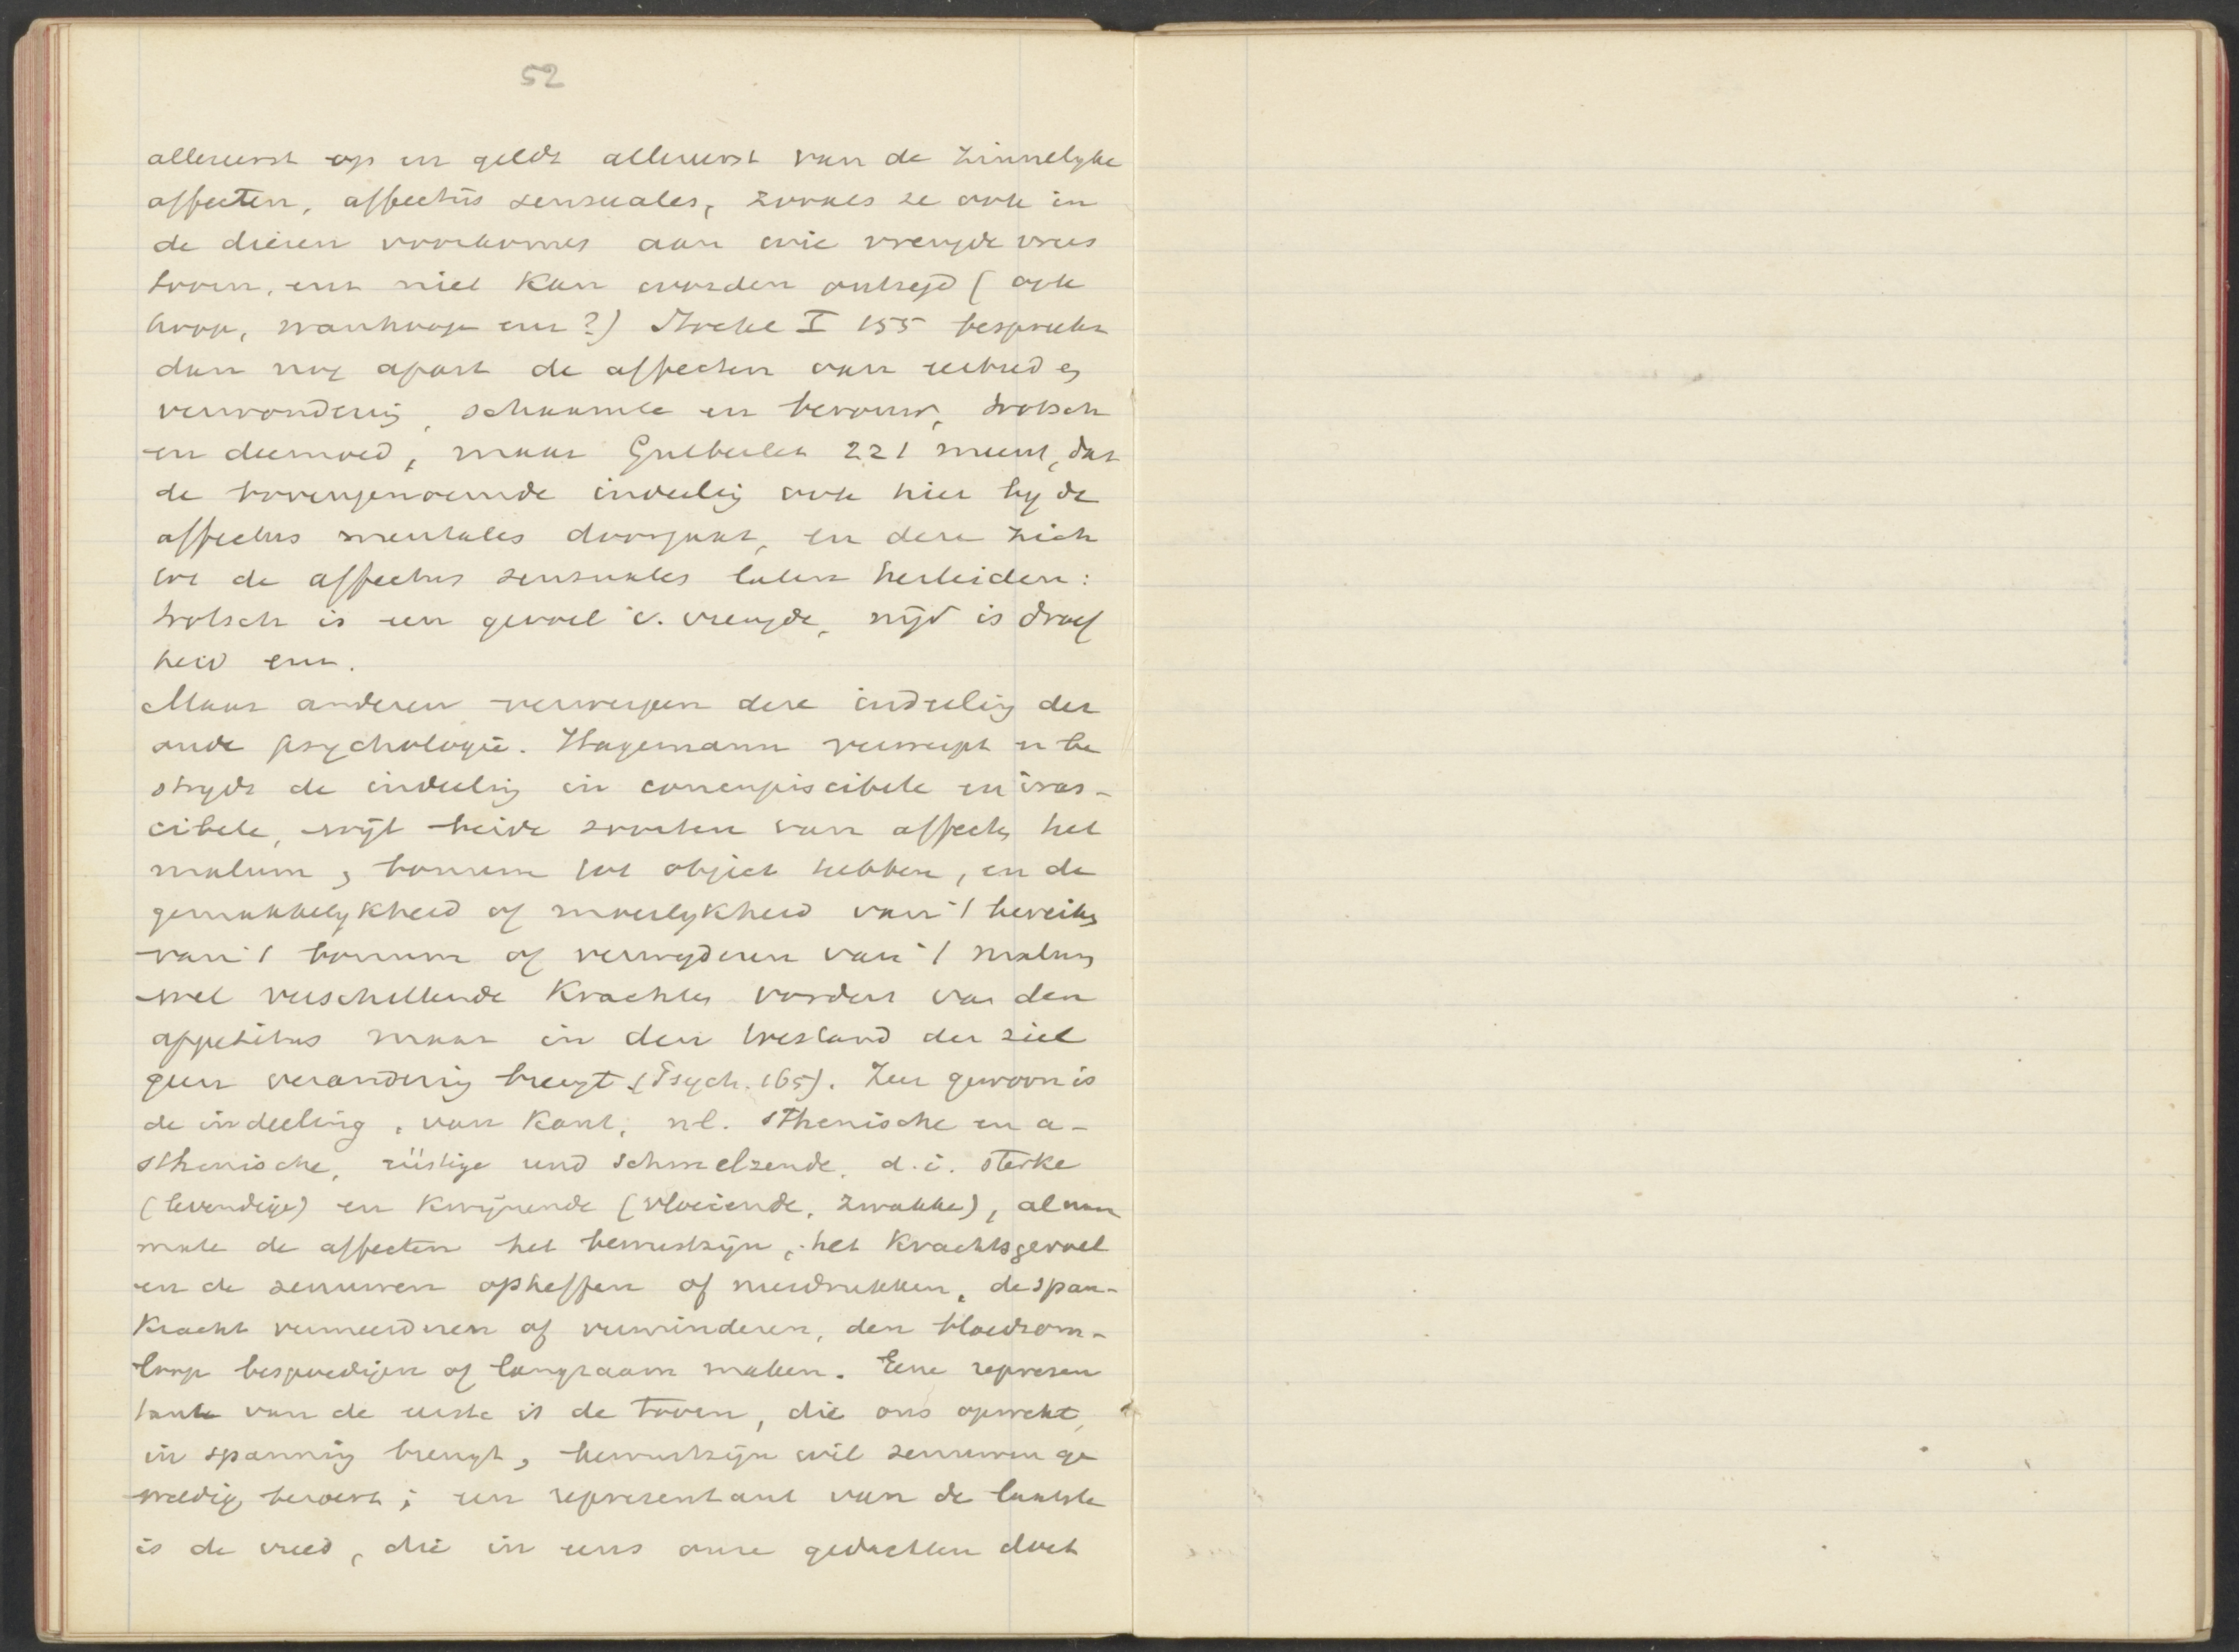 52
allereerst op en geldt allereerst van de zinnelyke
affecten, affectus sensuales, zooals ze ook in
de dieren voorkomen aan wie vreugde vrees
toorn, enz niet kan worden ontzegd (ook
hoop, wanhoop enz?) Stöckl I 155 bespreekt
dan nog apart de affecten van
verwondering, schaamte en berouw, trotsch
en deemoed, maar Gutberlet 221 meent, dat
de bovengenoemde indeeling ook hier by de
affectus mentales doorgaat, en deze zich
tot de affectus sensuales laten herleiden:
trotsch is een gevoel v. vreugde, nijd is droef
heid enz.
Maar anderen verwerpen deze indeeling der
oude psychologie. Hagemann verwerpt en be
strydt de indeeling in concupiscibele en iras-
cibele, wijl beide soorten van affecten het
malum en bonum tot object hebben, en de
gemakkelykheid of moeilykheid van 't bereiken
van 't bonum of verwyderen van 't malum
wel verschillende krachten vordert van den
appetitus maar in den toestand der ziel
geen verandering brengt (Psych. 165). Zeer gewoon is
de indeeling, van Kant, nl. sthenische en a-
sthenische, rüstige und schmelzende, d.i. sterke
(levendige) en kwijnende (vloeiende, zwakke), al naar
mate de affecten het bewustzijn, het krachtsgevoel
en de zenuwen opheffen of neerdrukken, de span-
kracht vermeerderen of verminderen, den bloedsom-
loop bespoedigen of langzaam maken. Eene represen
tante van de eerste is de toorn, die ons opwekt,
in spanning brengt, bewustzijn wil zenuwen ge
weldig beroert; een representant van de laatste
is de vrees, die in eens onze gedachten doet